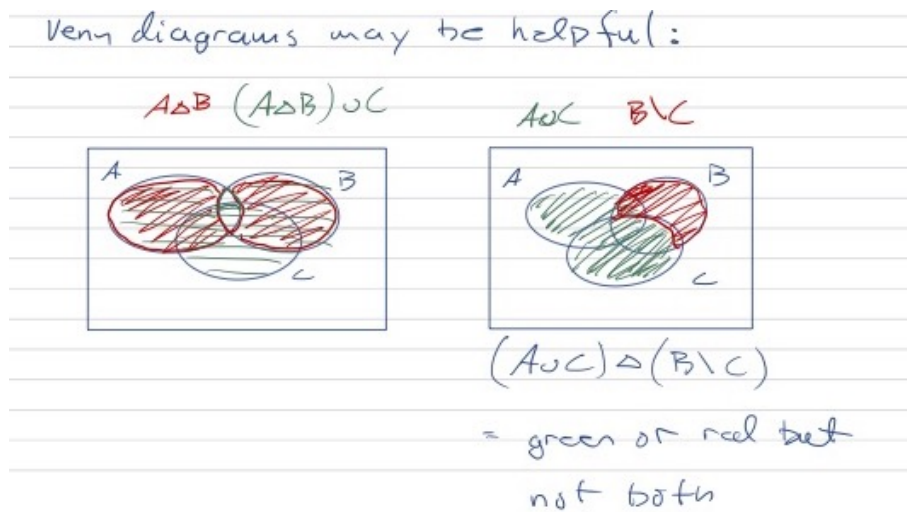 Venn diagrams may be helpful:
A△B (A△B)∪C
A∪C B\C
A B
C
A B
C
(A∪C)△(B\C)
= green or red but
not both